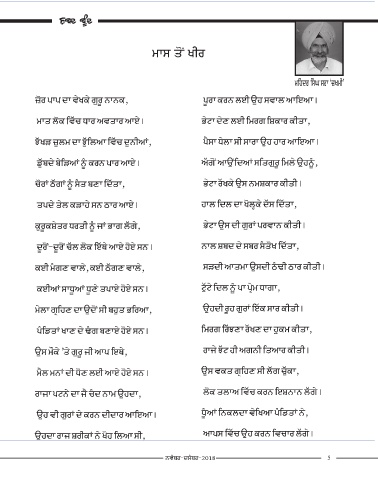 ਸ਼ਬਦ ਬੂੰਦ
ਮਾਸ ਤੋਂ ਖੀਰ
ਮਹਿੰਦਰ ਸਿੰਘ ਸਰਾਂ 'ਦਖਮੀ'
ਜ਼ੋਰ ਪਾਪ ਦਾ ਵੇਖਕੇ ਗੁਰੂ ਨਾਨਕ,
ਮਾਤ ਲੋਕ ਵਿੱਚ ਧਾਰ ਅਵਤਾਰ ਆਏ।
ਝੱਖੜ ਜ਼ੁਲਮ ਦਾ ਝੁੱਲਿਆ ਵਿੱਚ ਦੁਨੀਆਂ,
ਡੁੱਬਦੇ ਬੇੜਿਆਂ ਨੂੰ ਕਰਨ ਪਾਰ ਆਏ।
ਚੋਰਾਂ ਠੱਗਾਂ ਨੂੰ ਸੰਤ ਬਣਾ ਦਿੱਤਾ,
ਤਪਦੇ ਤੇਲ ਕੜਾਹੇ ਸਨ ਠਾਰ ਆਏ।
ਕੁਰੂਕਸ਼ੇਤਰ ਧਰਤੀ ਨੂੰ ਜਾਂ ਭਾਗ ਲੱਗੇ,
ਦੂਰੋਂ-ਦੂਰੋਂ ਚੱਲ ਲੋਕ ਇੱਥੇ ਆਏ ਹੋਏ ਸਨ।
ਕਈ ਮੰਗਣ ਵਾਲੇ, ਕਈ ਠੱਗਣ ਵਾਲੇ,
ਕਈਆਂ ਸਾਧੂਆਂ ਧੂਣੇ ਤਪਾਏ ਹੋਏ ਸਨ।
ਮੇਲਾ ਗ੍ਰਹਿਣ ਦਾ ਉਦੋਂ ਸੀ ਬਹੁਤ ਭਰਿਆ,
ਪੰਡਿਤਾਂ ਖਾਣ ਦੇ ਢੰਗ ਬਣਾਏ ਹੋਏ ਸਨ।
ਉਸ ਮੌਕੇ 'ਤੇ ਗੁਰੂ ਜੀ ਆਪ ਇਥੇ,
ਮੈਲ ਮਨਾਂ ਦੀ ਧੋਣ ਲਈ ਆਏ ਹੋਏ ਸਨ।
ਰਾਜਾ ਪਟਨੇ ਦਾ ਜੈ ਚੰਦ ਨਾਮ ਉਹਦਾ,
ਉਹ ਵੀ ਗੁਰਾਂ ਦੇ ਕਰਨ ਦੀਦਾਰ ਆਇਆ।
ਉਹਦਾ ਰਾਜ ਸ਼ਰੀਕਾਂ ਨੇ ਖੋਹ ਲਿਆ ਸੀ,
ਪੂਰਾ ਕਰਨ ਲਈ ਉਹ ਸਵਾਲ ਆਇਆ।
ਭੇਟਾ ਦੇਣ ਲਈ ਮਿਰਗ ਸ਼ਿਕਾਰ ਕੀਤਾ,
ਪੈਸਾ ਧੇਲਾ ਸੀ ਸਾਰਾ ਉਹ ਹਾਰ ਆਇਆ।
ਅੱਗੋਂ ਆਉਂਦਿਆਂ ਸਤਿਗੁਰੂ ਮਿਲੇ ਉਹਨੂੰ,
ਭੇਟਾ ਰੱਖਕੇ ਉਸ ਨਮਸ਼ਕਾਰ ਕੀਤੀ।
ਹਾਲ ਦਿਲ ਦਾ ਖੋਲ੍ਹਕੇ ਦੱਸ ਦਿੱਤਾ,
ਭੇਟਾ ਉਸ ਦੀ ਗੁਰਾਂ ਪਰਵਾਨ ਕੀਤੀ।
ਨਾਲ ਸ਼ਬਦ ਦੇ ਸਬਰ ਸੰਤੋਖ ਦਿੱਤਾ,
ਸੜਦੀ ਆਤਮਾ ਉਸਦੀ ਠੰਢੀ ਠਾਰ ਕੀਤੀ।
ਟੁੱਟੇ ਦਿਲ ਨੂੰ ਪਾ ਪ੍ਰੇਮ ਧਾਗਾ,
ਉਹਦੀ ਰੂਹ ਗੁਰਾਂ ਇੱਕ ਸਾਰ ਕੀਤੀ।
ਮਿਰਗ ਰਿੰਝਣਾ ਰੱਖਣ ਦਾ ਹੁਕਮ ਕੀਤਾ,
ਰਾਜੇ ਝੱਟ ਹੀ ਅਗਨੀ ਤਿਆਰ ਕੀਤੀ।
ਉਸ ਵਕਤ ਗ੍ਰਹਿਣ ਸੀ ਲੱਗ ਚੁੱਕਾ,
ਲੋਕ ਤਲਾਅ ਵਿੱਚ ਕਰਨ ਇਸ਼ਨਾਨ ਲੱਗੇ।
ਧੂੰਆਂ ਨਿਕਲਦਾ ਵੇਖਿਆ ਪੰਡਿਤਾਂ ਨੇ,
ਆਪਸ ਵਿੱਚ ਉਹ ਕਰਨ ਵਿਚਾਰ ਲੱਗੇ।
ਨਵੰਬਰ-ਦਸੰਬਰ-2018
5